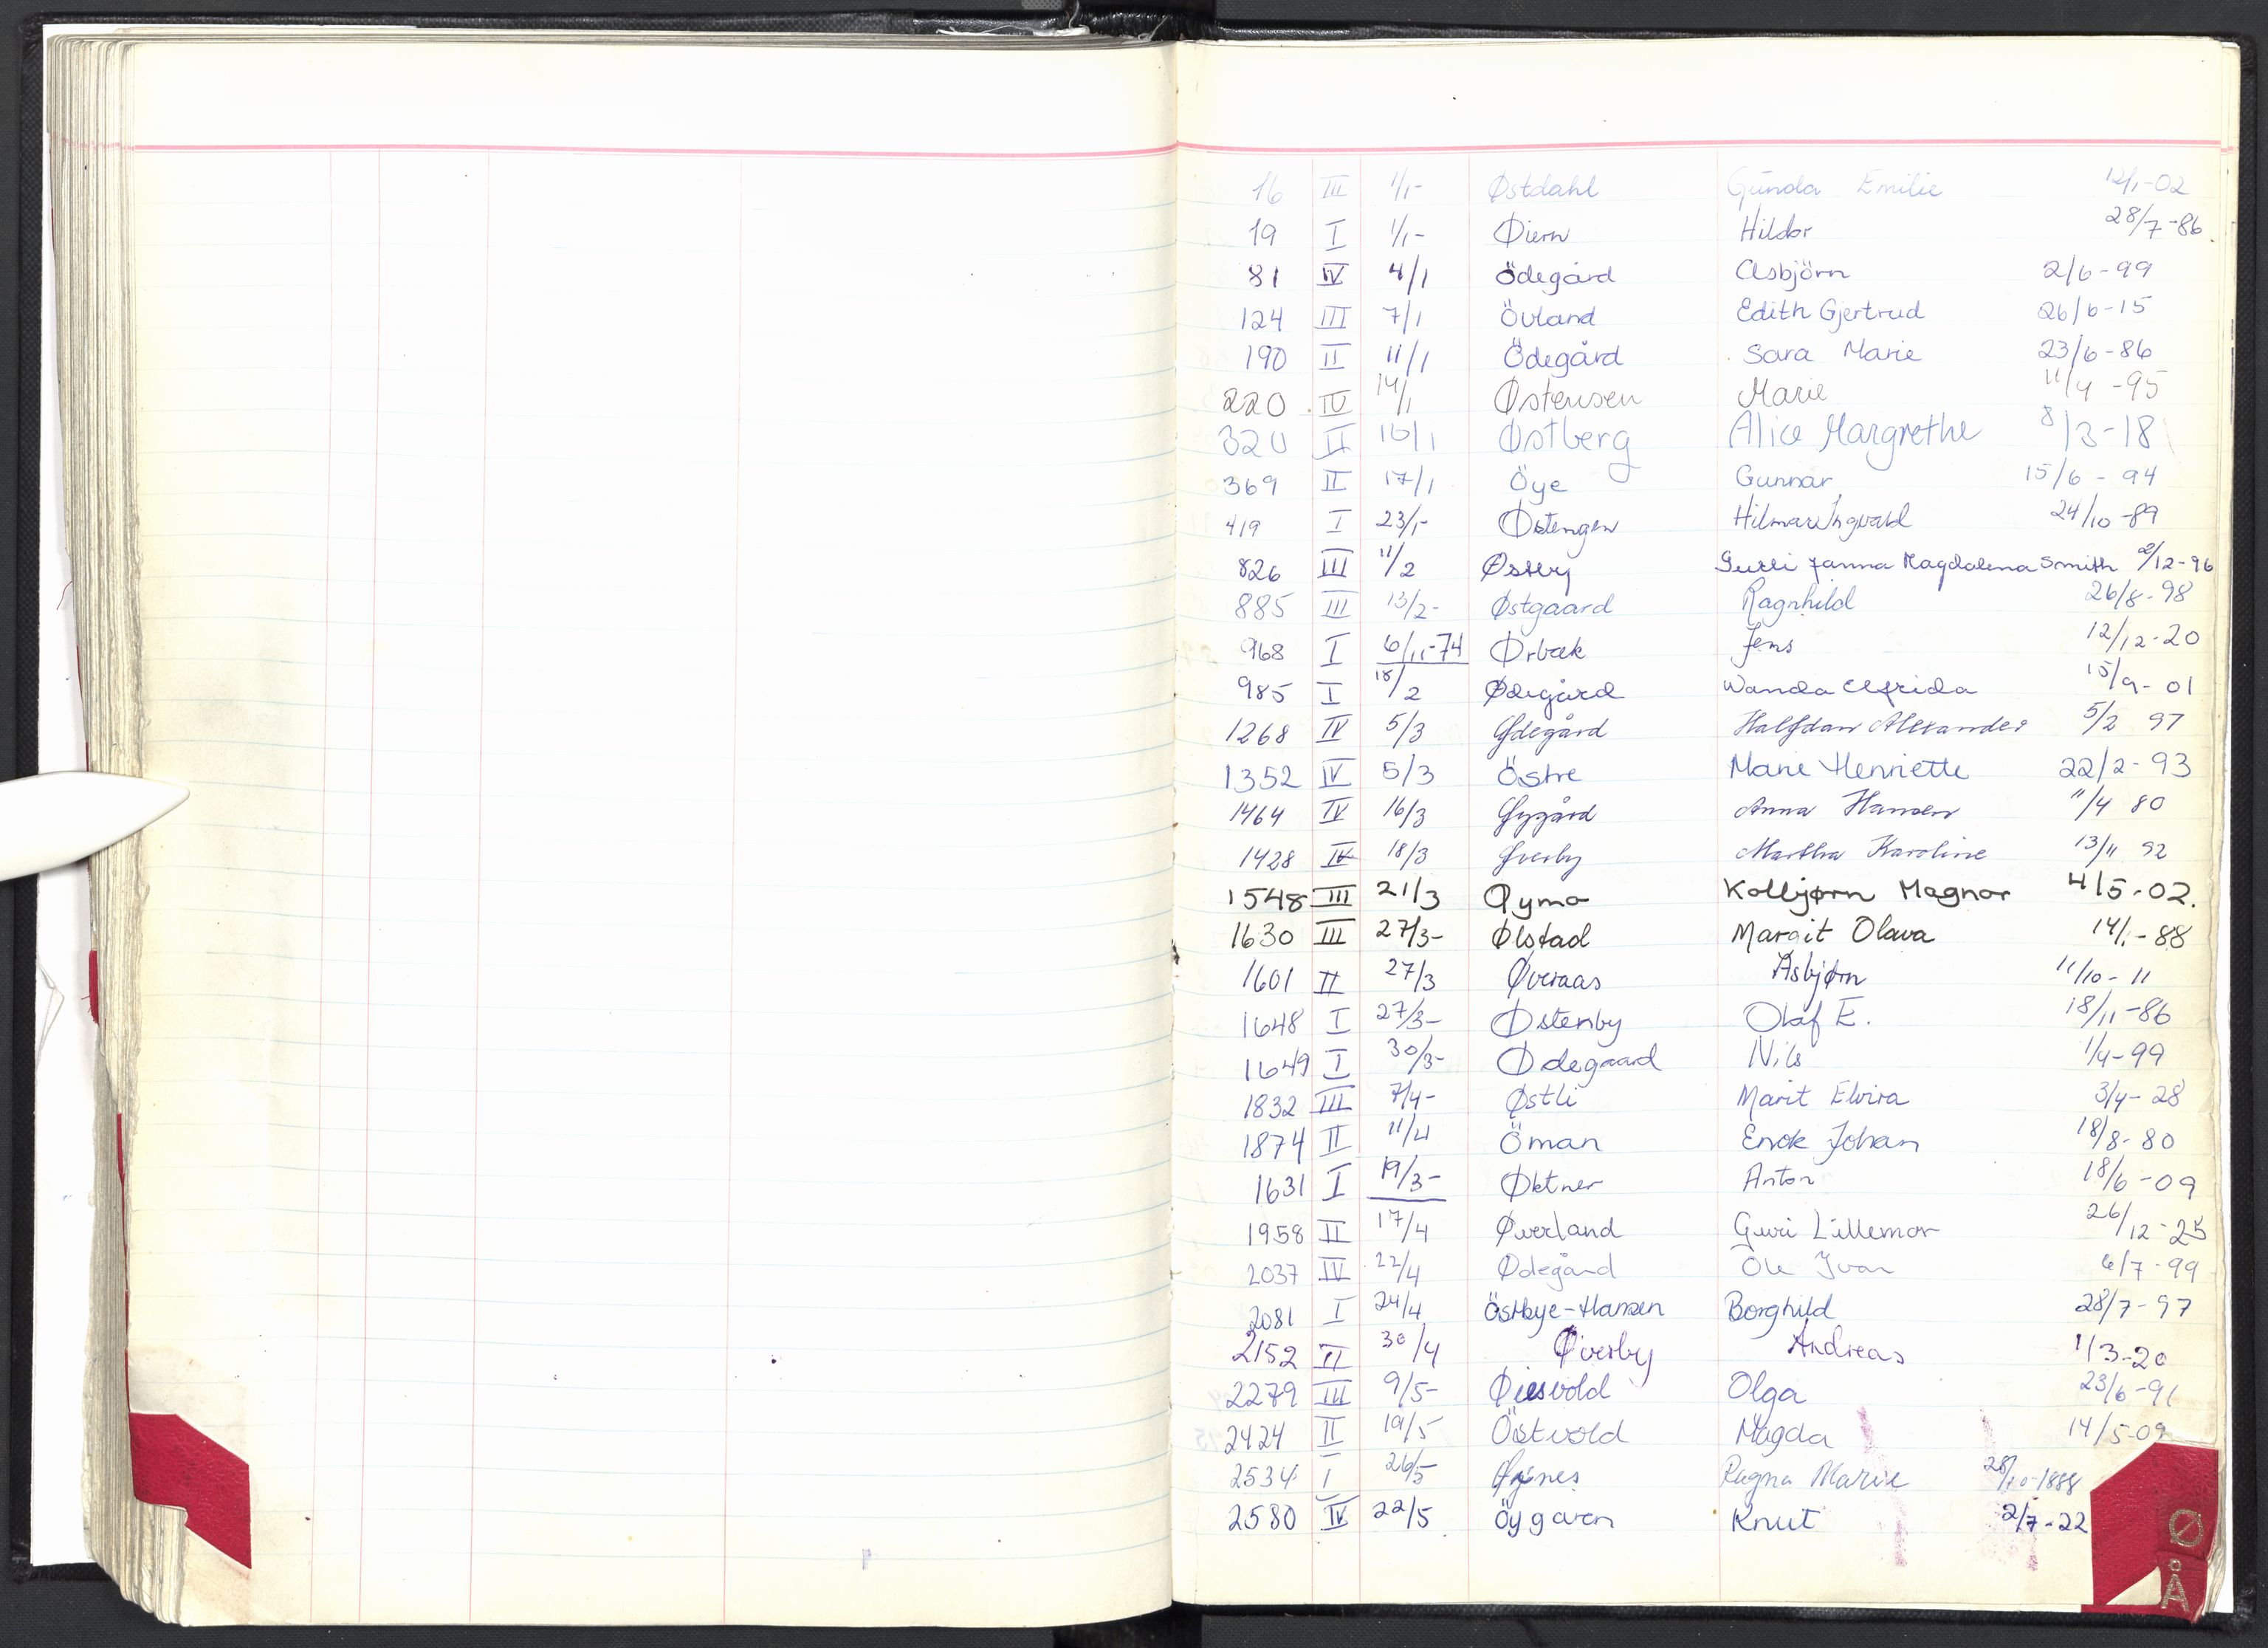 16 III 1/1- Østdahl Gunda Emilie 12/1-02
19 I 1/1- Øiern Hildor 28/7-86.
81 IV 4/1 Ödegård Asbjörn 2/6-99
124 III 7/1 Övland Edith Gjertrud 26/6-15
190 II 11/1 Ödegård Sara Marie 23/6-86
220 IV 14/1 Østensen Marie 11/4-95
320 II 16/1 Østberg Alice Margrethe 8/3-18
369 II 17/1 Öye Gunnar 15/6-94
419 I 23/1- Østengen Hilmar Ingvald 24/10-89
826 III 11/2 Østby Janna Magdalena Smith 2/12-96
885 III 13/2- Østgaard Ragnhild 26/8-98
968 I 6/11-74 Ørbæk Jens 12/12-20
985 I 18/2 Ødegård Wanda Alfrida 15/9-01
1268 IV 5/3 Ødegård Halfdan Alexander 5/2 97
1352 IV 5/3 Östre Marie Henriette 22/2-93
1464 IV 16/3 Øygård Anna Hansen 11/4 80
1428 IV 18/3 Øverby Martha Karoline 13/11 92
1548 III 21/3 Øymo Kolbjørn Magnor 4/5-02.
1630 III 27/3- Ølstad Margit Olava 14/1-88
1601 II 27/3 Øveraas Asbjørn 11/10-11
1648 I 27/3- Østenby Olaf E. 18/11-86
1649 I 30/3- Ødegaard Nils 1/4-99
1832 III 7/4- Østli Marit Elvira 3/4-28
1874 II 11/4 Öman Enok Johan 18/8-80
1631 I 19/3- Øktner Anton 18/6-09
1958 II 17/4 Øverland Guri Lillemor 26/12-25
2037 IV 22/4 Ødegård Ole Ivar 6/7-99
2081 I 24/4 Östbye-Hansen Borghild 28/7-97
2152 II 30/4 Øverby Andreas 1/3-20
2279 III 9/5- Øiesvold Olga 23/6-91
2424 II 19/5 Östvold Magda 14/5-09
2534 I 26/5 Øynes Ragna Marie 28/10-1888
2580 IV 22/5 Öygaren Knut 2/7-22
Ø
Å